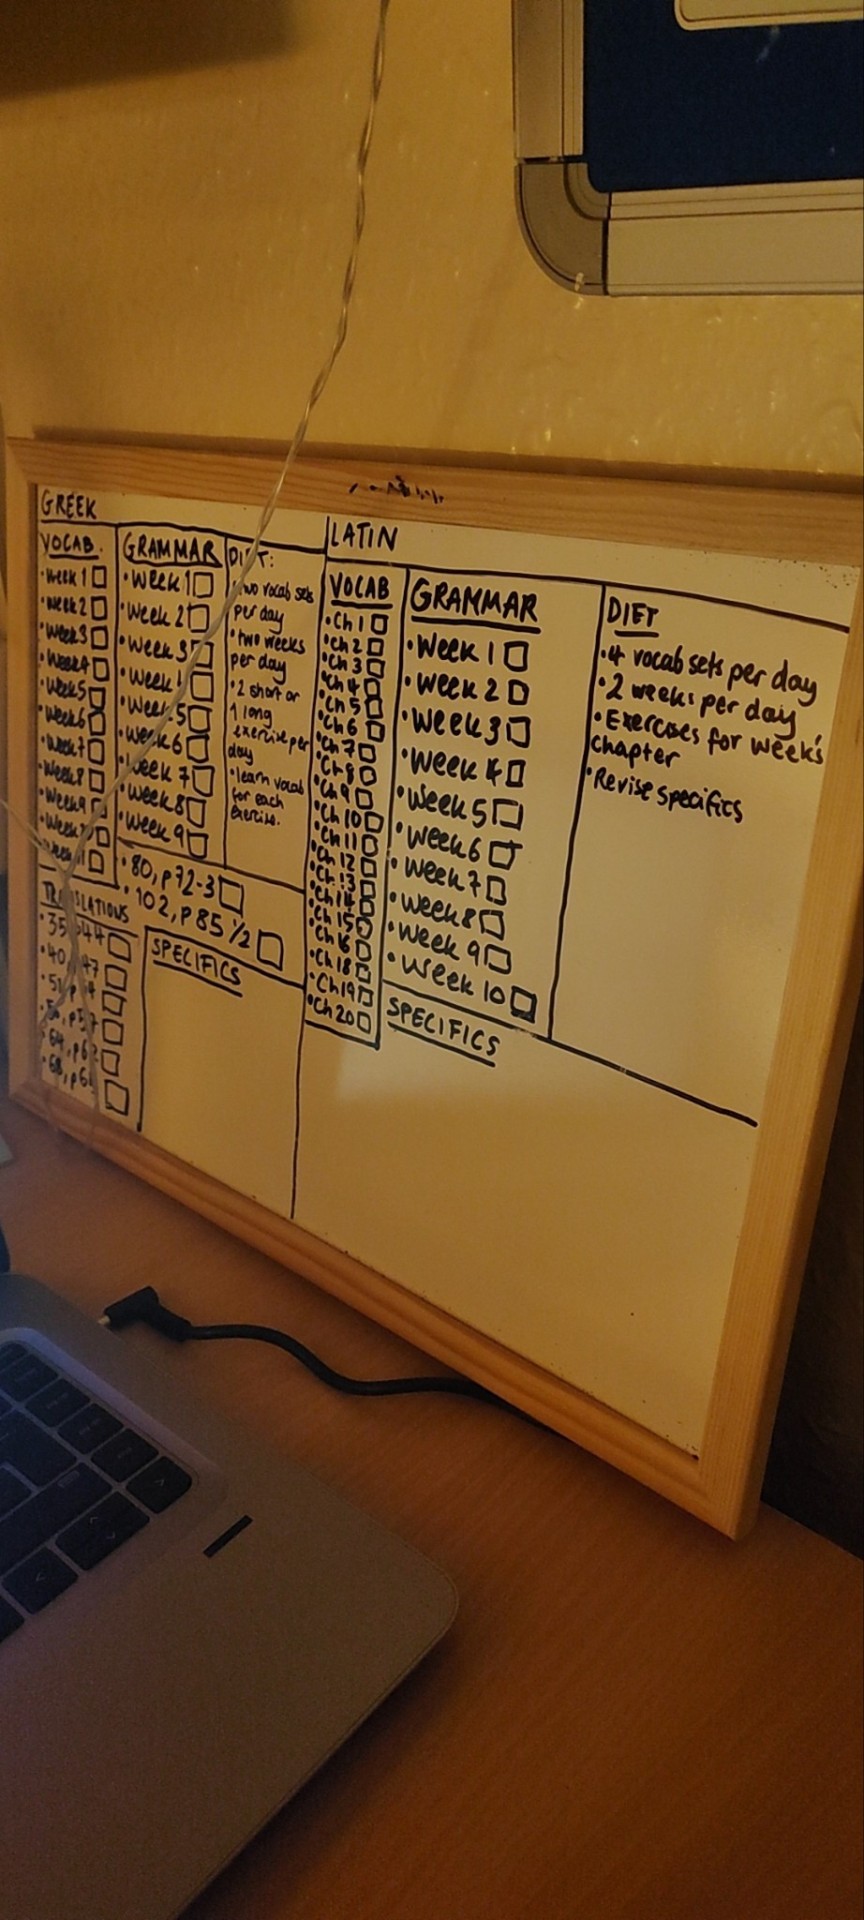 GREEK
VOCAB.
•Week 1
•Week 2
•Week 3
•Week 4
•Week 5
•Week 6
•Week 7
•Week 8
•Week 9
TRANSLATIONS
GRAMMAR
•Week 1
•Week 2
•Week 3
•Week
•Week 5
•Week 6
•Week 7
•Week 8
•Week 9
•80, p72-3
•102, p85 1/2
DIET:
two vocab sets
per day
•two weeks
per day
•2 short or
1 long
exercise per
day
•learn vocab
for each
exercise.
SPECIFICS
LATIN
VOCAB
•Ch 1
•Ch 2
•Ch 3
•Ch 4
•Ch 5
•Ch 6
•Ch 7
•Ch 8
•Ch 9
•Ch 10
•Ch 11
•Ch 12
•Ch 13
•Ch 14
•Ch 15
•Ch 16
•Ch 18
•Ch 19
•Ch 20
GRAMMAR
•Week 1
•Week 2
•Week 3
•Week 4
•Week 5
•Week 6
•Week 7
•Week 8
•Week 9
•Week 10
DIET
•4 vocab sets per day
•2 weeks per day
•Exercises for week's
chapter
•Revise specifics
SPECIFICS